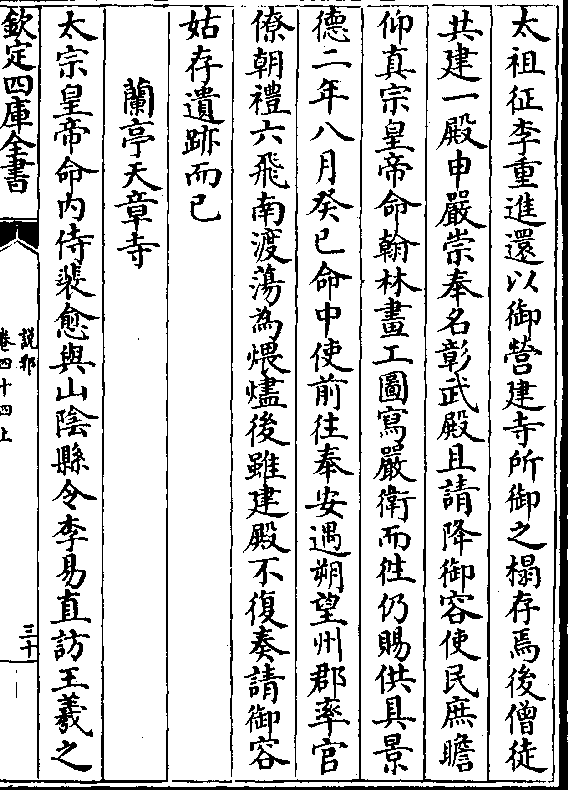 太祖征李重進還以御營建寺所御之榻存焉後僧徒
共建一殿申嚴崇奉名彰武殿且請降御容使民庶瞻
仰真宗皇帝命翰林畫工圖寫嚴衛而徃仍賜供具景
德二年八月癸巳命中使前往奉安遇朔望州郡率官
僚朝禮六飛南渡蕩為煨燼後雖建殿不復奏請御容
姑存遺跡而已
蘭亭天章寺
太宗皇帝命内侍裴愈與山陰縣令李易直訪王羲之
欽定四庫全書
説郛
卷四十四上
三十